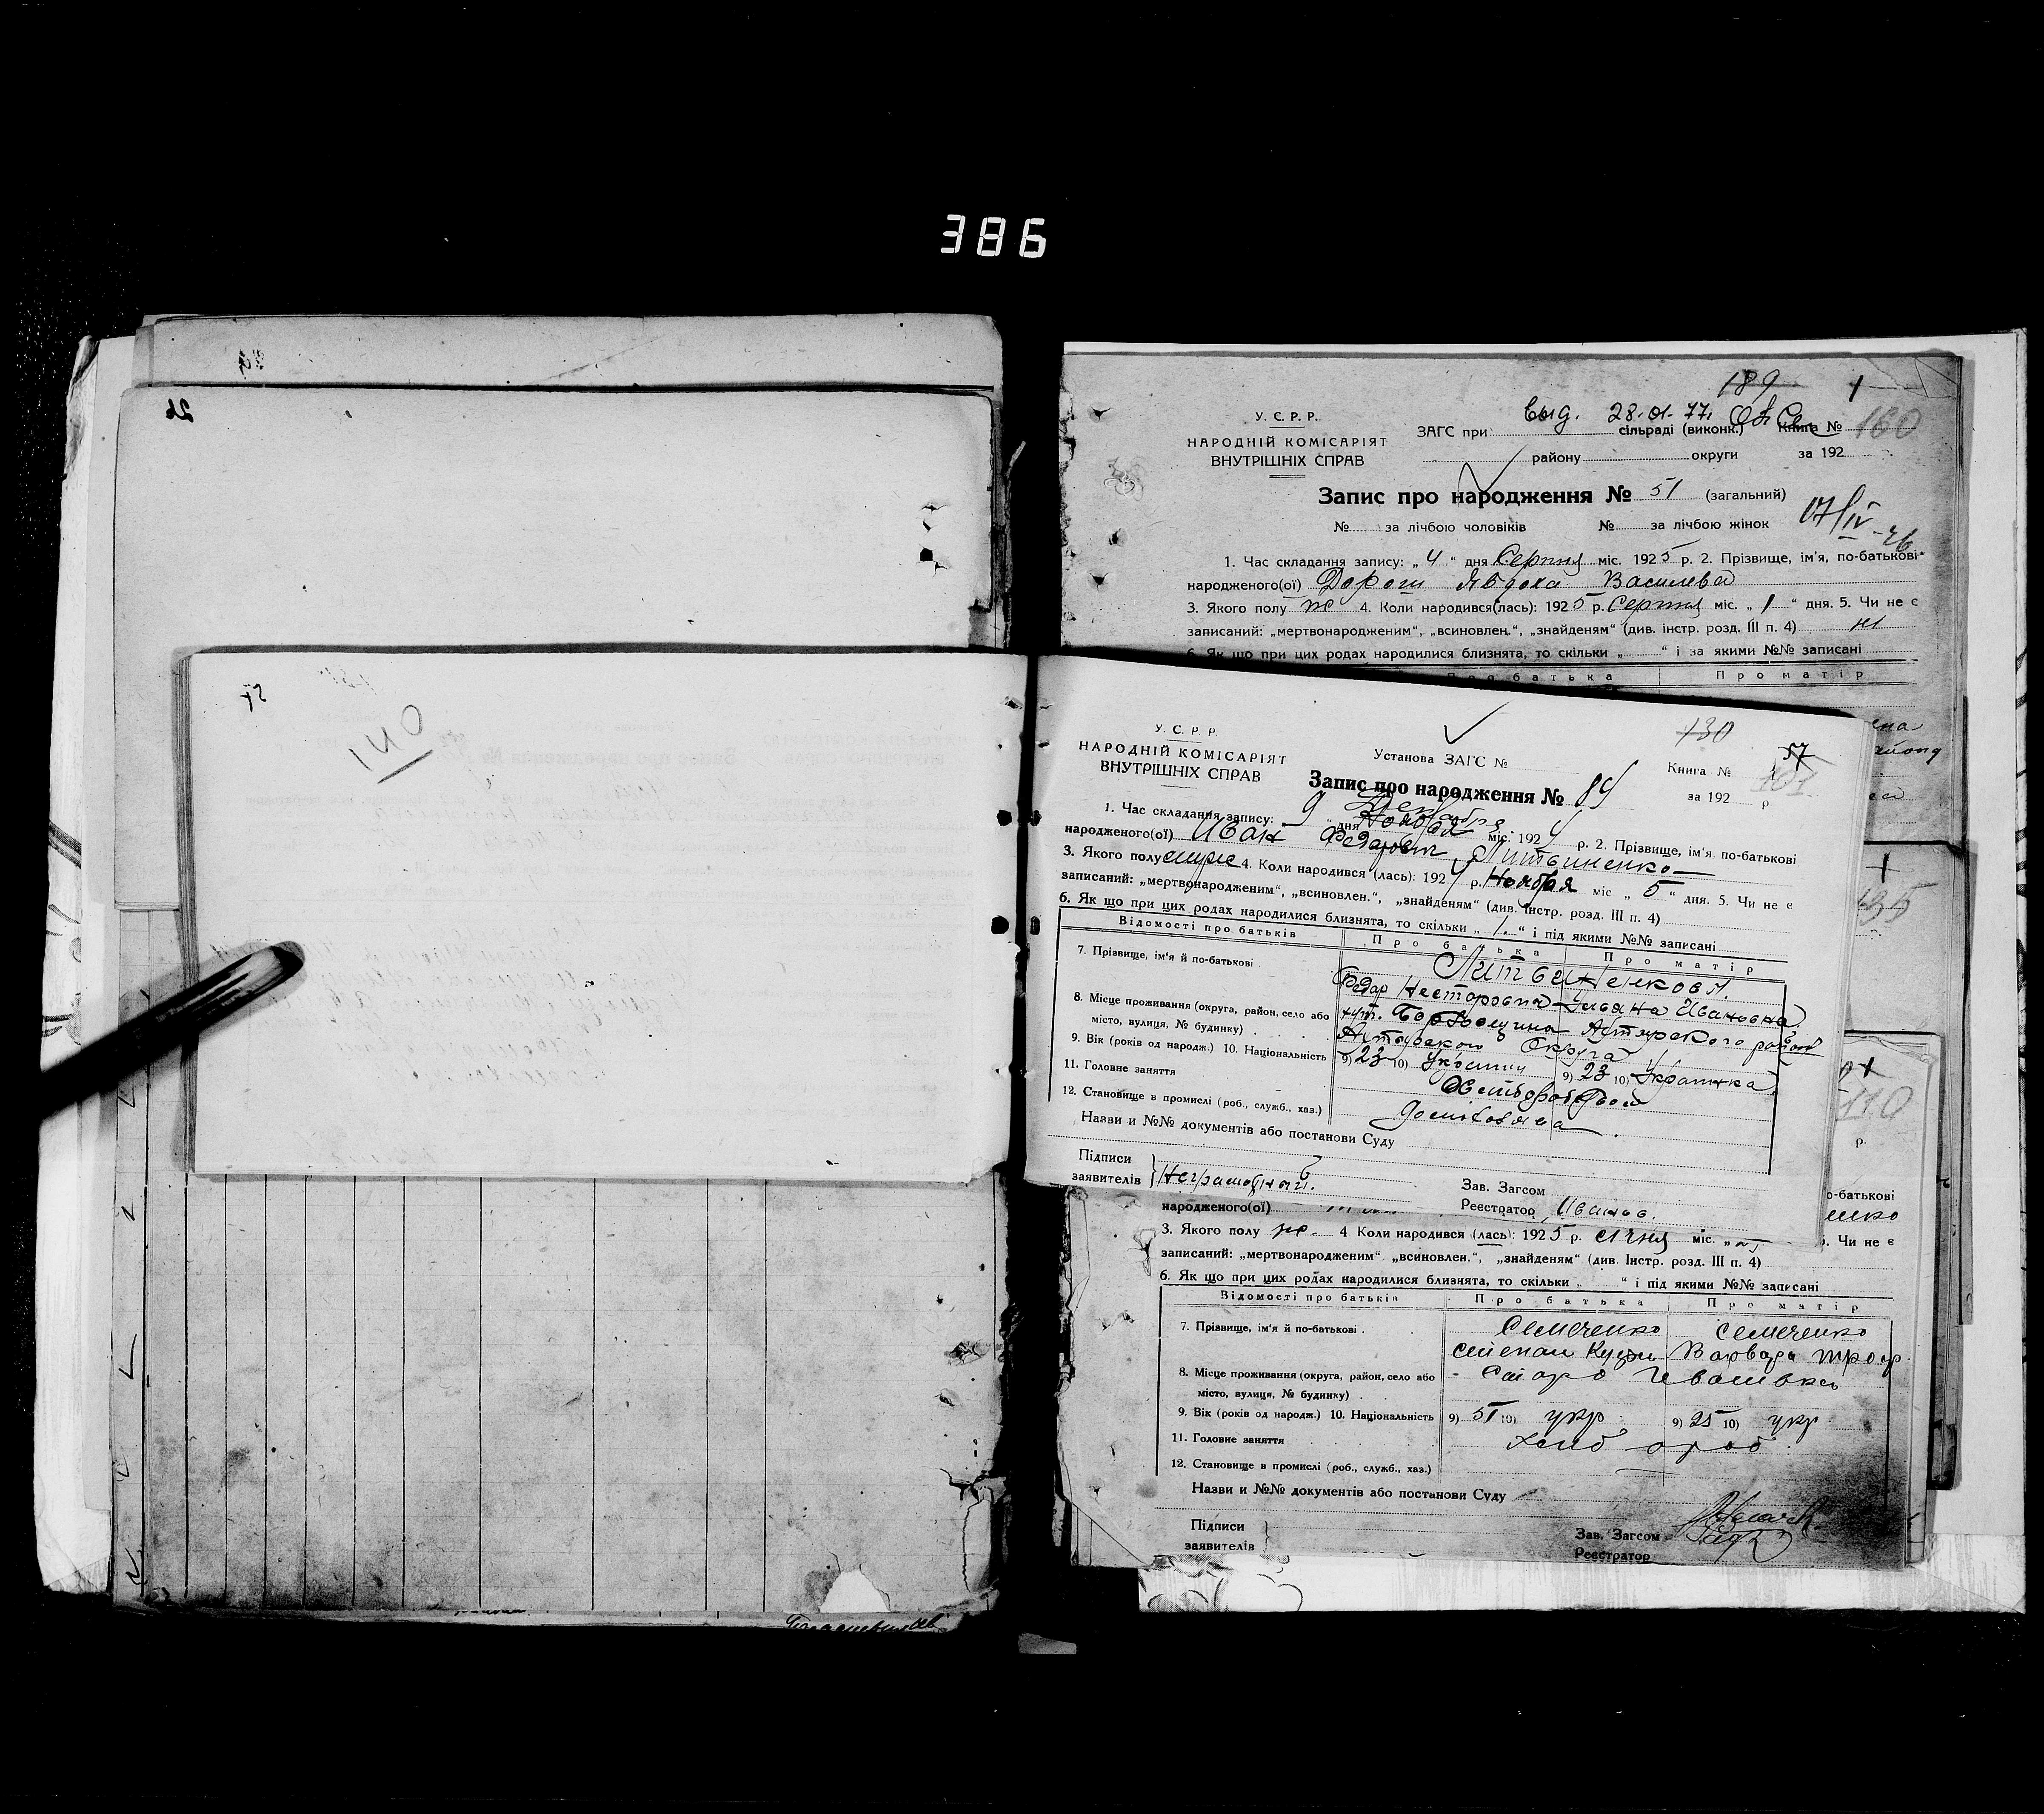 386
26
57
189
выд. 28.01.77.
У. С. Р. Р.
НАРОДНІЙ КОМІСАРІЯТ
ВНУТРІШНІХ СПРАВ
ЗАГС при сільраді (виконк.) Книга № 160
району округи за 192
Запис про народження № 51 (загальний)
№ за лічбою чоловіків № за лічбою жінок
17/IV-26
1. Час складання запису: „4“ дня Серпня міс. 1925 р. 2. Прізвище, ім'я, по-батькові
народженого(ої) Дорош Явдоха Василева
3. Якого полу ж 4. Коли народився(лась): 1925 р. Серпня міс. „1“ дня. 5. Чи не є
записаний: „мертвонародженим“, „всиновлен.“, „знайденям“ (див. інстр. розд. III п. 4) ні
6. Як що при цих родах народилися близнята, то скільки „ “ і за якими №№ записані
Про батька Про матір
130
57
У. С. Р. Р.
НАРОДНІЙ КОМІСАРІЯТ
ВНУТРІШНІХ СПРАВ
Установа ЗАГС №
Книга №
за 192 р
Запис про народження № 89
1. Час складання запису: 9 „ дня Ноября Декабря міс. 192 р. 2. Прізвище, ім'я по-батькові
народженого(ої) Иван Федорович Литвиненко
3. Якого полу муж 4. Коли народився (лась): 192 р. Ноября міс „5“ дня. 5. Чи не є
записаний: „мертвонародженим“, „всиновлен.“, „знайденям“ (див. Інстр. розд. III п. 4)
6. Як що при цих родах народилися близнята, то скільки „1.“ і під якими №№ записані
Відомості про батьків Про батька Про матір
7. Прізвище, ім'я й по-батькові Литвиненковы
Федор Несторович Ульяна Ивановна
8. Місце проживання (округа, район, село або
місто, вулиця, № будинку)
хут. Ахтырского район
Ахтырской Округа
9. Вік (років од народж.) 10. Національність 9) 23 10) Украинц 9) 23 10) Украинка
11. Головне заняття Хлебороб
12. Становище в промислі (роб., служб., хаз.)
Назви и №№ документів або постанови Суду
Підписи
заявителів Неграмотный.
Зав. Загсом
Реєстратор Иванов.
135
110
р.
народженого(ої)
3. Якого полу ж. 4 Коли народився (лась): 1925 р. січня міс. „ . Чи не є
записаний: „мертвонародженим“ „всиновлен.“, „знайденям“ (див. Інстр. розд. III п. 4)
6. Як що при цих родах народилися близнята, то скільки „ “ і під якими №№ записані
Відомості про батьків Про батька Про матір
7. Прізвище, ім'я й по-батькові Семеченко Семеченко
Степан Кузм Варвара Троф
8. Місце проживання (округа, район, село або
місто, вулиця, № будинку)
Старо Ивановка
9. Вік (років од народж.) 10. Національність 9) 51 10) укр 9) 25 10) укр
11. Головне заняття хліб ороб
12. Становище в промислі (роб., служб., хаз.)
Назви и №№ документів або постанови Суду
Підписи
заявителів
Зав. Загсом
Реєстратор